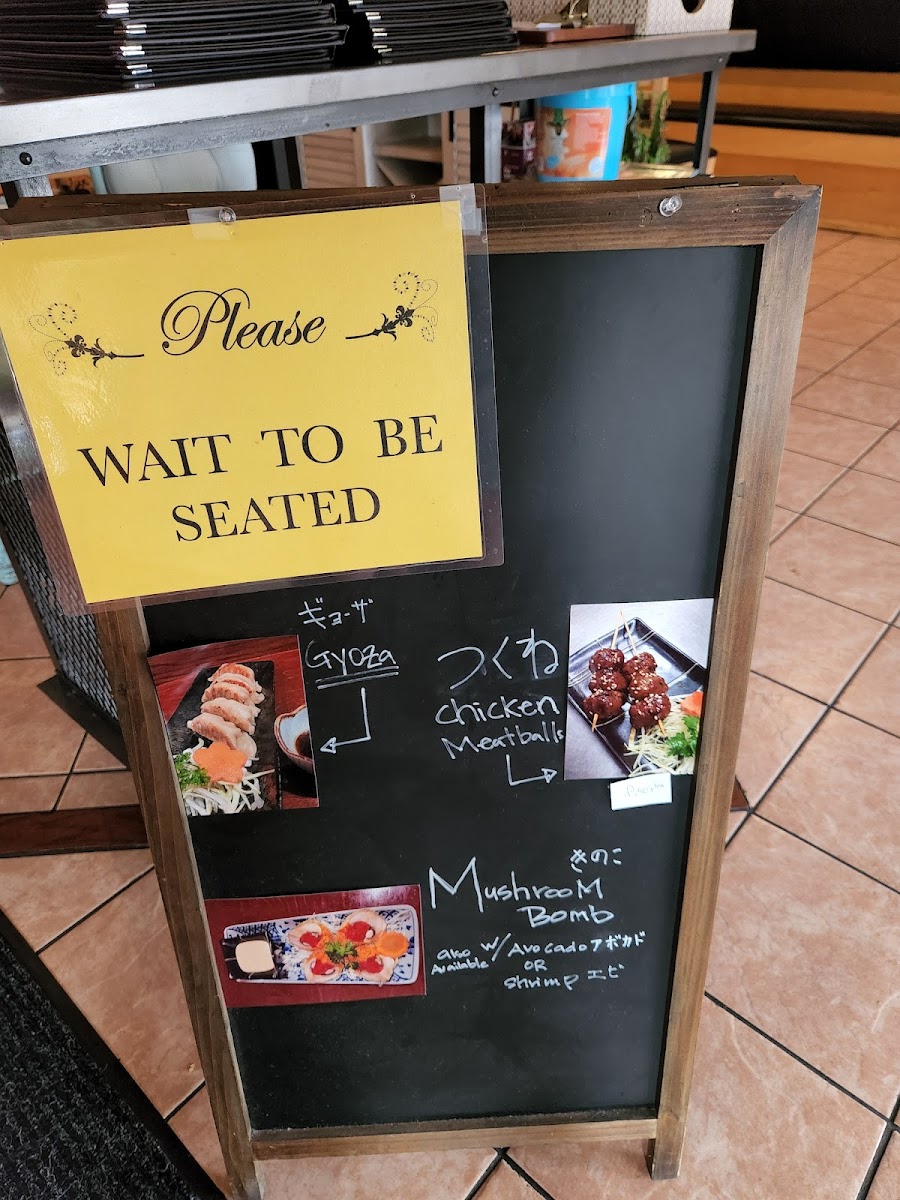 Please
WAIT TO BE
SEATED
ギョーザ
Gyoza
つくね
chicken
Meatballs
きのこ
MushrooM
Bomb
also Available w/ Avocado アボカド
OR
shrimp エビ